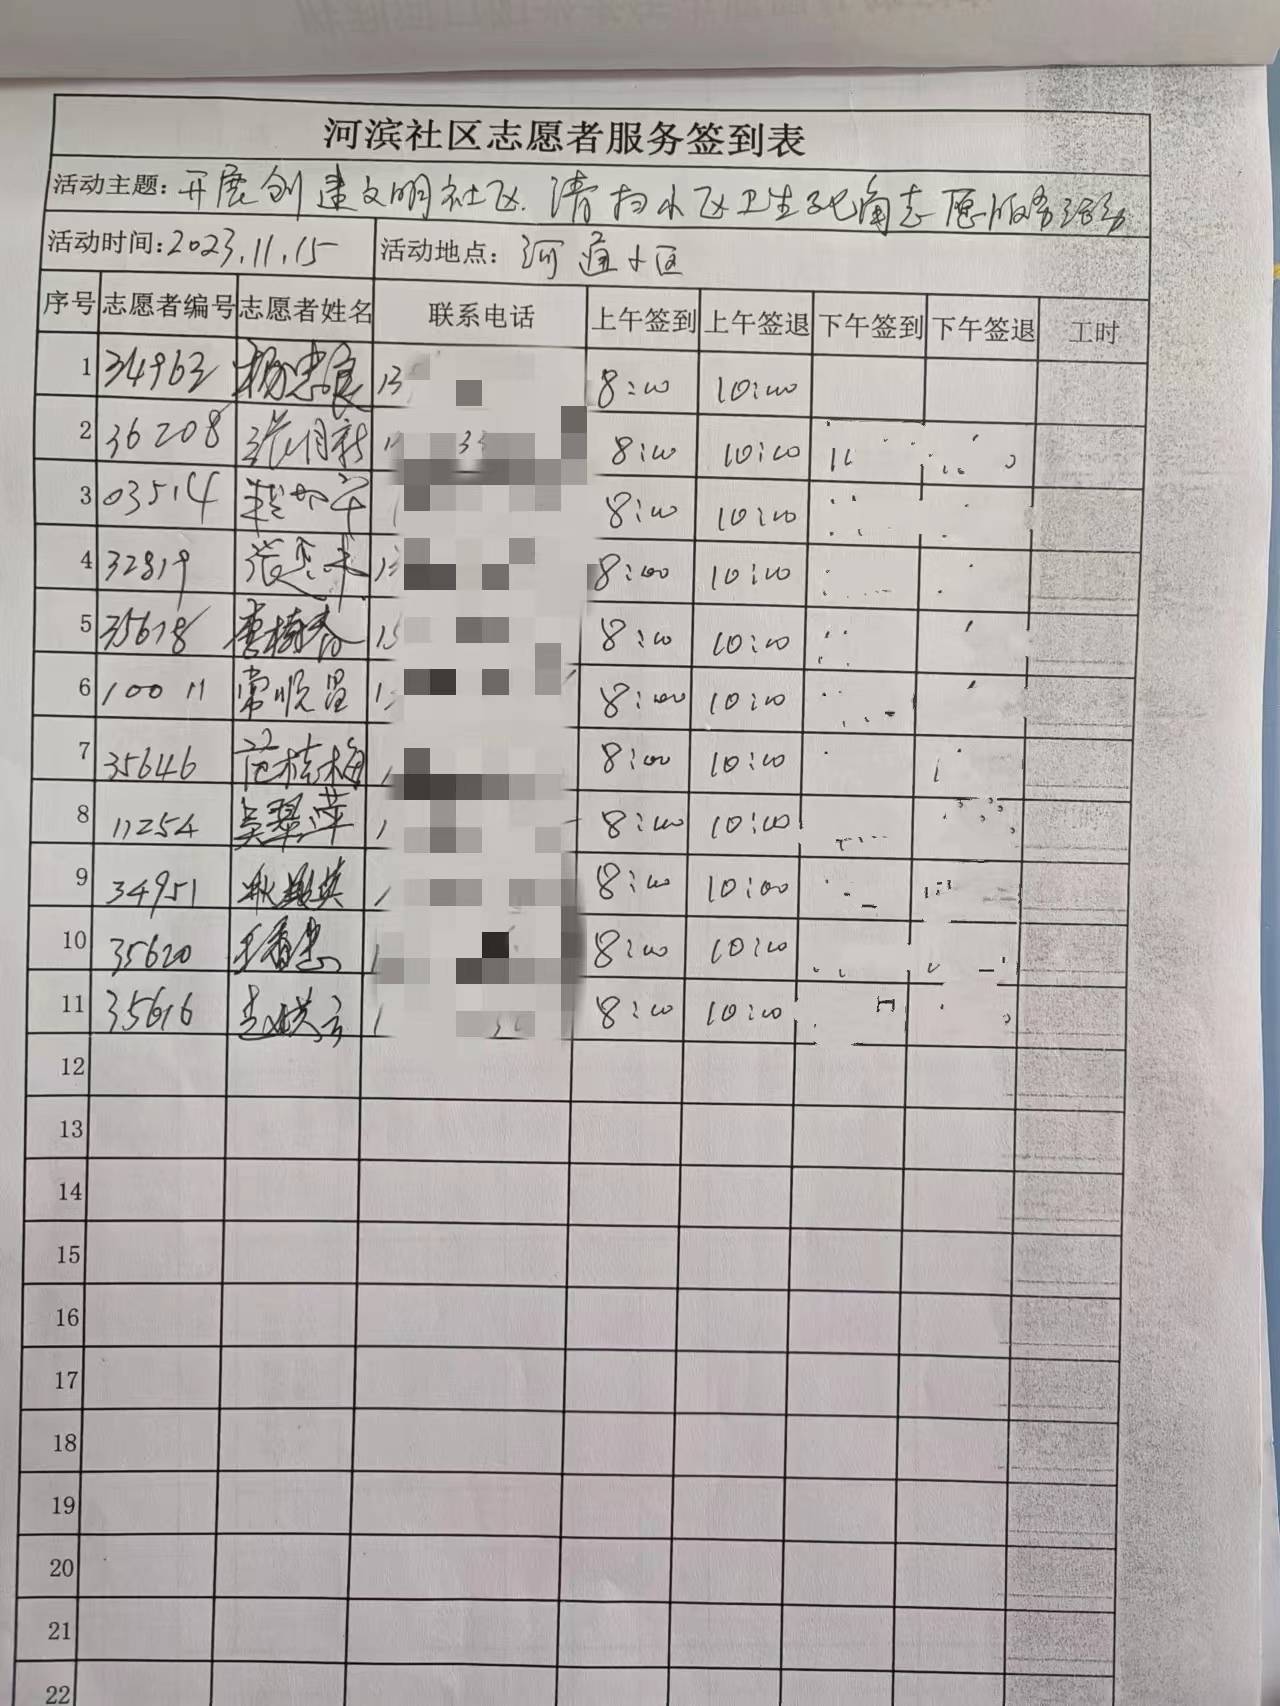 河滨社区志愿者服务签到表
活动主题：开展创建文明社区.清扫小区卫生死角志愿服务活动
活动时间：2023.11.15 活动地点：河道小区
序号 志愿者编号 志愿者姓名 联系电话 上午签到 上午签退 下午签到 下午签退 工时
1 34963 杨忠良 13 8:00 10:00
2 36208 8:00 10:00
3 03514 8:00 10:00
4 32819 8:00 10:00
5 35618 李梅春 8:00 10:00
6 10011 常顺温 8:00 10:00
7 35646 范桂梅 8:00 10:00
8 11254 吴翠萍 8:00 10:00
9 34951 8:00 10:00
10 35620 王香忠 8:00 10:00
11 35616 8:00 10:00
12
13
14
15
16
17
18
19
20
21
22